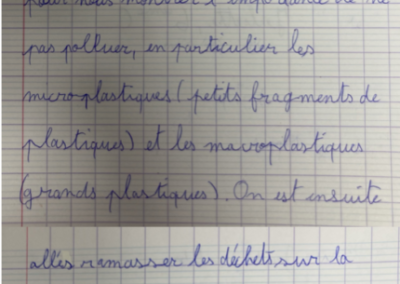 pour nous montrer l'importance de ne
pas polluer, en particulier les
microplastiques (petits fragments de
plastiques) et les macroplastiques
(grands plastiques). On est ensuite
allés ramasser les déchets sur la